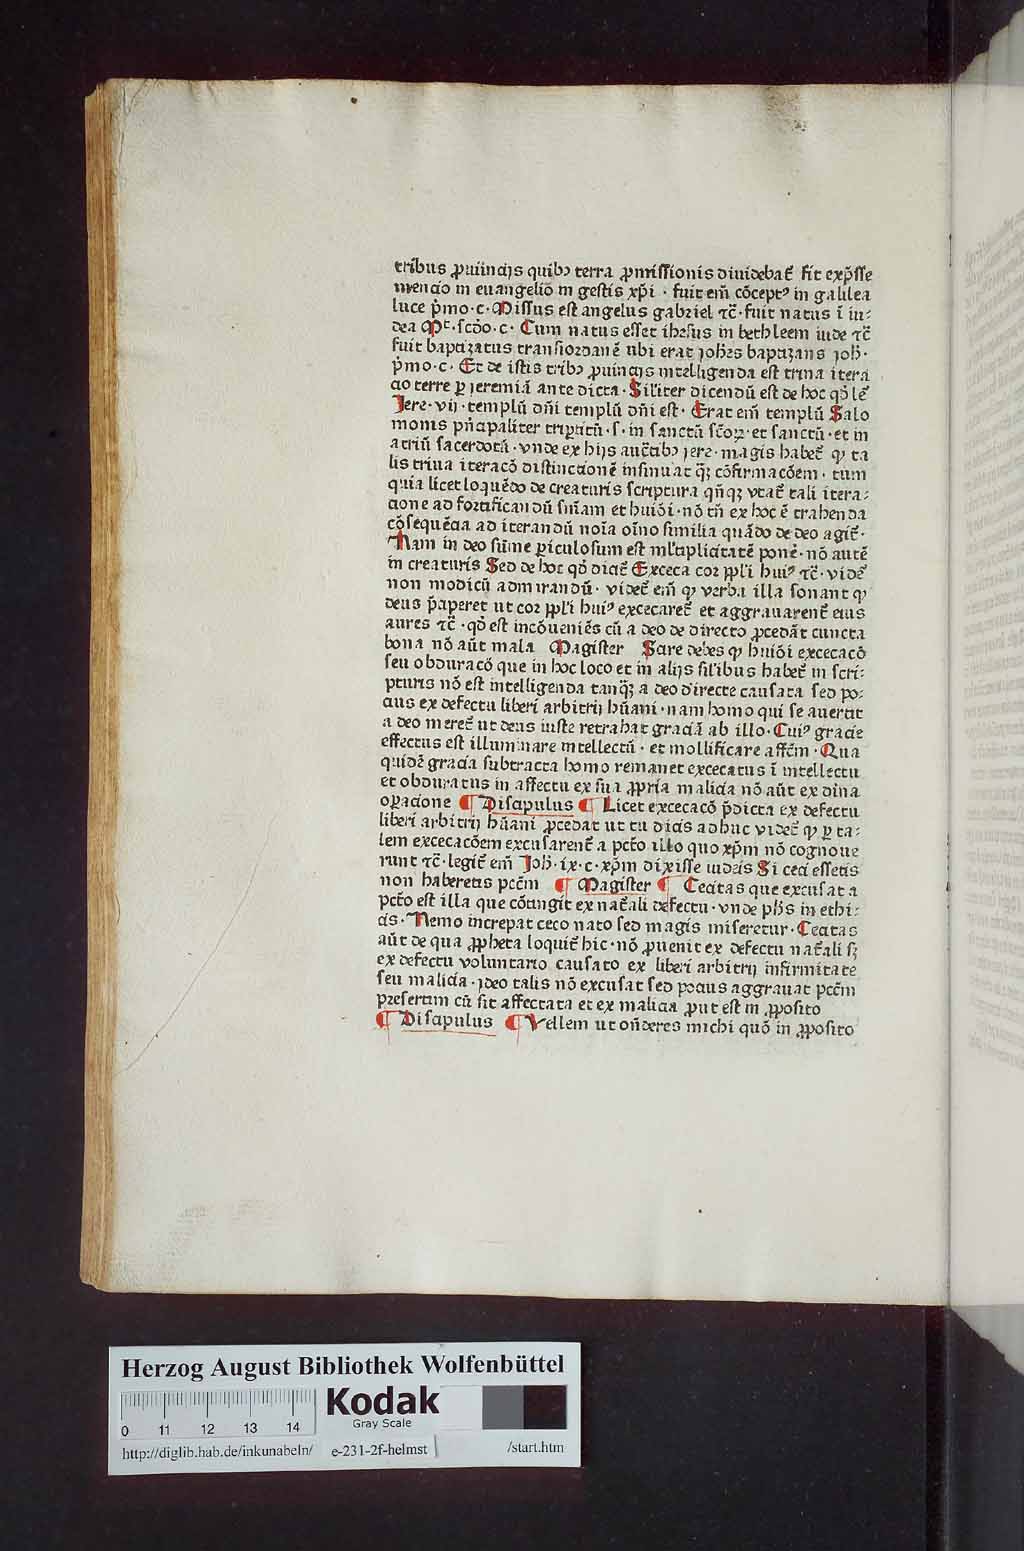 tribus ꝓuincijs quibꝰ terra ꝓmissionis diuidebat᷑ fit exp̄sse
mencio in euangelio in gestis xp̄i · fuit em̄ cōceptꝰ in galilea
luce p̄mo · c · Missus est angelus gabriel ⁊c̄ · fuit natus ī iu⸗
dea Mt · scd̄o · c · Cum natus esset ihesus in bethleem iude ⁊c̄
fuit baptizatus transiordanē ubi erat joh̄es baptizans joh̄ ·
p̄mo · c · Et de istis tribꝰ ꝓuincijs intelligenda est trina itera
cio terre ꝑ jeremiā ante dicta · Sil̄iter dicendū est de hoc qd̄ le᷑
Jere · vij · templū dn̄i templū dn̄i est · Erat em̄ templū Salo
monis pn̄cipaliter tripͣtitū · s · in sanctū sc̄oꝝ · et sanctū · et in
atriū sacerdotū · vnde ex hijs auctibꝰ jere · magis habet᷑ ꝙ ta
lis trina iteracō distinctionē insinuat qͣꝫ cōfirmacōem · tum
quia licet loquēdo de creaturis scriptura qn̄qꝫ vtat᷑ tali itera⸗
cione ad fortificandū sn̄iam et huiōi · nō tn̄ ex hoc ē trahenda
cōsequēcia ad iterandū noīa oīno similia quādo de deo agit᷑ ·
Nam in deo sūme ꝑiculosum est ml̄tiplicitatē pone᷑ · nō autē
in creaturis Sed de hoc qd̄ dicit᷑ Exceca cor pp̄li huiꝰ ⁊c̄ · vide᷑
non modicū admirandū · videt᷑ em̄ ꝙ verba illa sonant ꝙ
deus p̄ciperet ut cor pp̄li huiꝰ excecaret᷑ et aggrauarent᷑ eius
aures ⁊c̄ · qd̄ est incōueniēs cū a deo de directo ꝓcedāt cuncta
bona nō aūt mala Magister Scire debes ꝙ huiōi excecacō
seu obduracō que in hoc loco et in alijs sil̄ibus habet᷑ in scri⸗
pturis nō est intelligenda tanqͣꝫ a deo directe causata sed po⸗
cius ex defectu liberi arbitrij hūani · nam homo qui se auertit
a deo meret᷑ ut deus iuste retrahat graciā ab illo · Cuiꝰ gracie
effectus est illuminare intellectū · et mollificare affc̄m · Qua
quidē gracia subtracta homo remanet excecatus ī intellectu
et obduratus in affectu ex sua ꝓpria malicia nō aūt ex diina
oꝑacione ¶ Discipulus ¶ Licet excecacō p̄dicta ex defectu
liberi arbitrij hūani ꝓcedat ut tu dicis adhuc videt᷑ ꝙ ꝑ ta⸗
lem excecacōem excusarent᷑ a pctō illo quo xp̄m nō cognoue
runt ⁊c̄ · legit᷑ em̄ Joh̄ · ix · c · xp̄m dixisse iudeis Si ceci essetis
non haberetis pcc̄m ¶ Magister ¶ Cecitas que excusat a
pctō est illa que cōtingit ex nat᷑ali defectu · vnde ph̄s in ethi⸗
cis · Nemo increpat ceco nato sed magis miseretur · Cecitas
aūt de qua ꝓpheta loquit᷑ hic · nō ꝓuenit ex defectu nat᷑ali sꝫ
ex defectu voluntario causato ex liberi arbitrij infirmitate
seu malicia · ideo talis nō excusat sed pocius aggrauat pcc̄m
presertim cū sit affectata et ex malicia ꝓut est in ꝓposito
¶ Discipulus ¶ Vellem ut on̄deres michi quō in ꝓposito
Herzog August Bibliothek Wolfenbüttel
Kodak
Gray Scale
0 11 12 13 14
http://diglib.hab.de/inkunabeln/ e-231-2f-helmst /start.htm